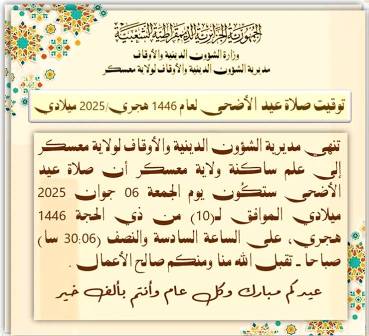 الجمهورية الجزائرية الديمقراطية الشعبية
وزارة الشؤون الدينية والأوقاف
مديرية الشؤون الدينية والأوقاف لولاية معسكر
توقيت صلاة عيد الأضحى لعام 1446 هجري/2025 ميلادي
تنهي مديرية الشؤون الدينية والأوقاف لولاية معسكر
إلى علم ساكنة ولاية معسكر أن صلاة عيد
الأضحى ستكون يوم الجمعة 06 جوان 2025
ميلادي الموافق لـ(10) من ذي الحجة 1446
هجري، على الساعة السادسة والنصف (30:06 سا)
صباحا ـ تقبل الله منا ومنكم صالح الأعمال .
عيدكم مبارك وكل عام وأنتم بألف خير